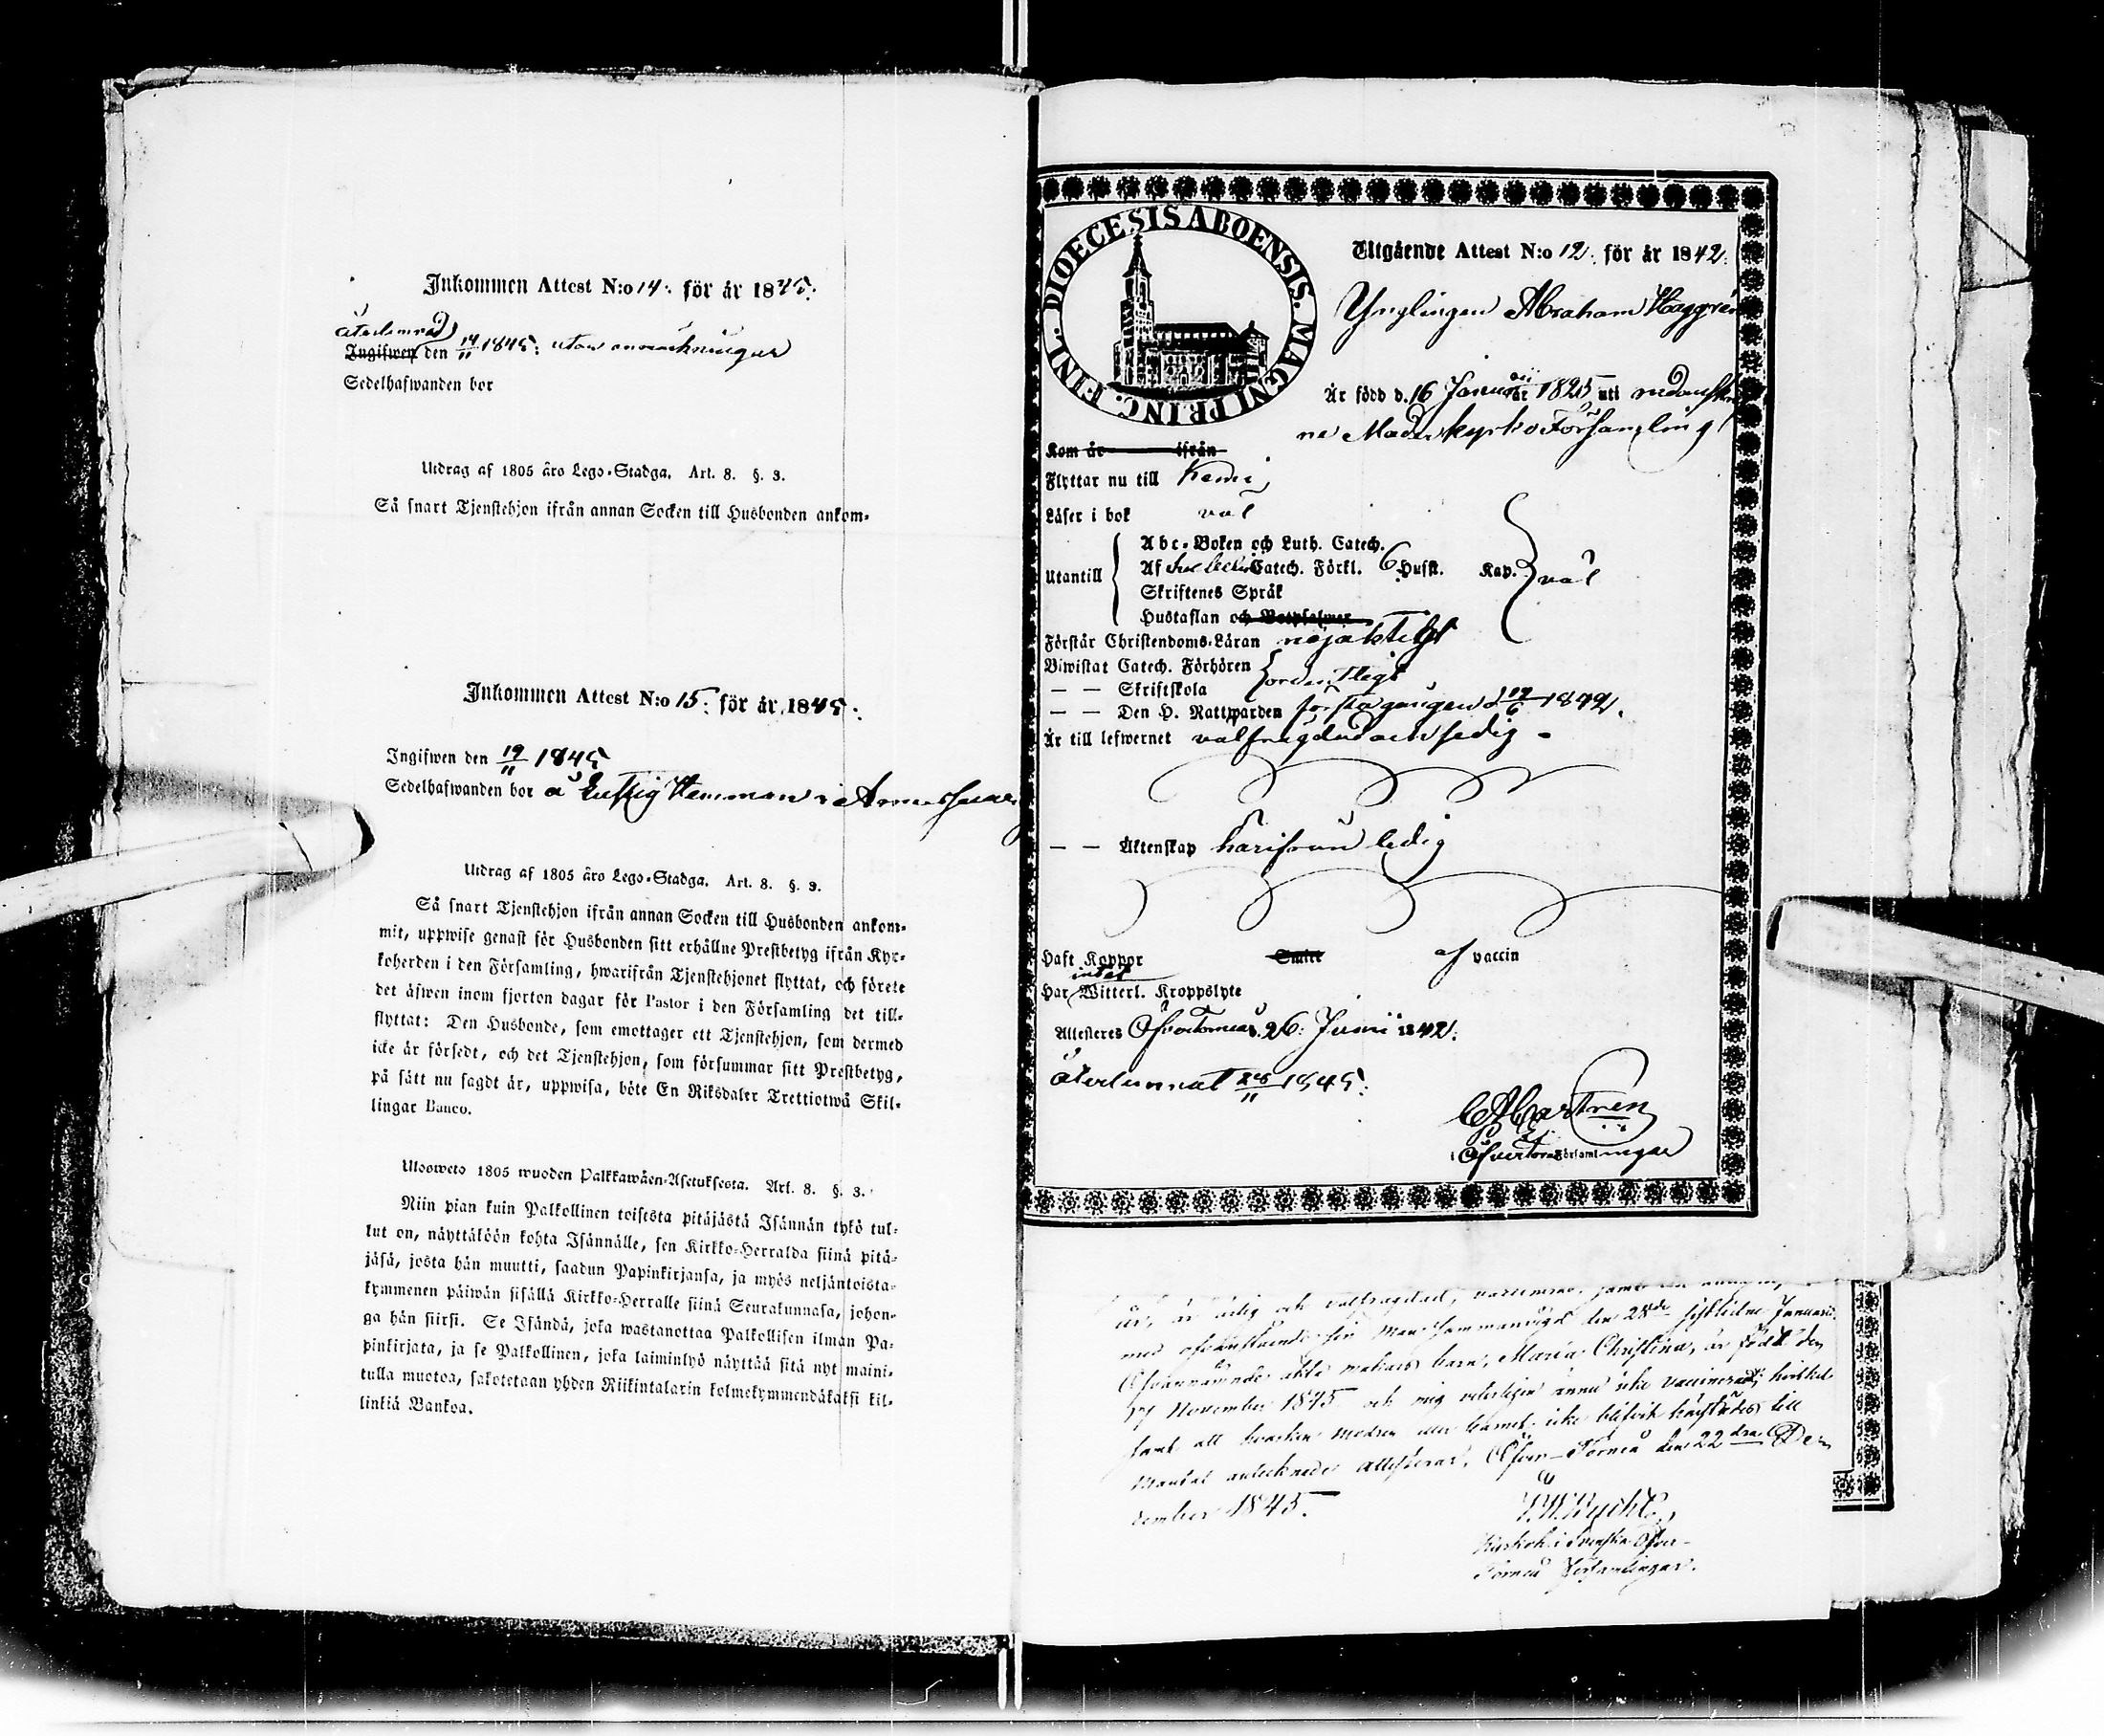 Inkommen Attest N:o 14. för år 1845.
återlemnad
Ingifwen den 14/11 1845. utan anmärkningar
Sedelhafwanden bor
Utdrag af 1805 åro Lego-Stadga. Art. 8. §. 3.
Så snart Tjenstehjon ifrån annan Socken till Husbonden ankom-
Inkommen Attest N:o 15. för år 1845.
Ingifwen den 19/11 1845
Sedelhafwanden bor å Hemman i
Utdrag af 1805 åro Lego-Stadga. Art. 8. §. 3.
Så snart Tjenstehjon ifrån annan Socken till Husbonden ankom-
mit, uppwise genast för Husbonden sitt erhållne Prestbetyg ifrån Kyr-
koherden i den Församling, hwarifrån Tjenstehjonet flyttat, och förete
det äfwen inom fjorton dagar för Pastor i den Församling det till-
flyttat: Den Husbonde, som emottager ett Tjenstehjon, som dermed
icke är försedt, och det Tjenstehjon, som försummar sitt Prestbetyg,
på sätt nu sagdt är, uppwisa, böte En Riksdaler Trettiotwå Skil-
lingar Banco.
Ulosweto 1805 wuoden Palkkawäen-Asetuksesta. Art. 8. §. 3.
Niin pian kuin Palkollinen toisesta pitäjästä Isännän tykö tul-
lut on, näyttäköön kohta Isännälle, sen Kirkko-Herralda siinä pitä-
jäsä, josta hän muutti, saadun Papinkirjansa, ja myös neljäntoista-
kymmenen päiwän sisällä Kirkko-Herralle siinä Seurakunnasa, johon-
ga hän siirsi. Se Isändä, joka wastanottaa Palkollisen ilman Pa-
pinkirjata, ja se Palkollinen, joka laiminlyö näyttää sitä nyt maini-
tulla muotoa, sakotetaan yhden Riikintalarin kolmekymmendäkaksi kil-
linkiä Bankoa.
DIOECESIS ABOENSIS. MAGNI PRINC. FINL.
Utgående Attest N:o 12. för år 1842.
Ynglingen Abraham Häggrén
Är född d. 16 Januarii år 1825 uti nedanskref
ne Moderkyrko Församling
Kom år ifrån
Flyttar nu till Kemi
Läser i bok väl
Utantill
Abc-Boken och Luth. Catech.
Af Catech. Förkl. 6 Husst. Kap. väl
Skriftenes Språk
Hustaflan och Botpsalmer
Förstår Christendoms-Läran nöjaktigt
Biwistat Catech. Förhören ordentligt
— — Skriftskola
— — Den H. Nattwarden första gången d. 19/6 1842.
Är till lefwernet välfrägdad och sedig -
— — Äktenskap härifrån ledig
Haft Koppor Smitt af vaccin
intet
Har Witterl. Kroppslyte
Attesteres ÖfverTorneå d. 26 Junii 1842.
återlemnat 28/11 1845.
C A Castrén
i ÖfverTorneå Församlingar
år, är ärlig och välfrägdad,
med ofvanstående sin Man sammanvigd den 28de sistledne Januarii.
Ofvannämnde äkta makars barn, Maria Christina, är född den
17 November 1845 och mig veterligen ännu icke vaccinerad; hvilket
samt att hvarken modren eller barnet icke blifvit härstädes till
Mantal antecknade attesterar, Öfver-Torneå den 22dra De-
cember 1845.
Kyrkoh. i Svenska Öfver-
Torneå Församlingar.